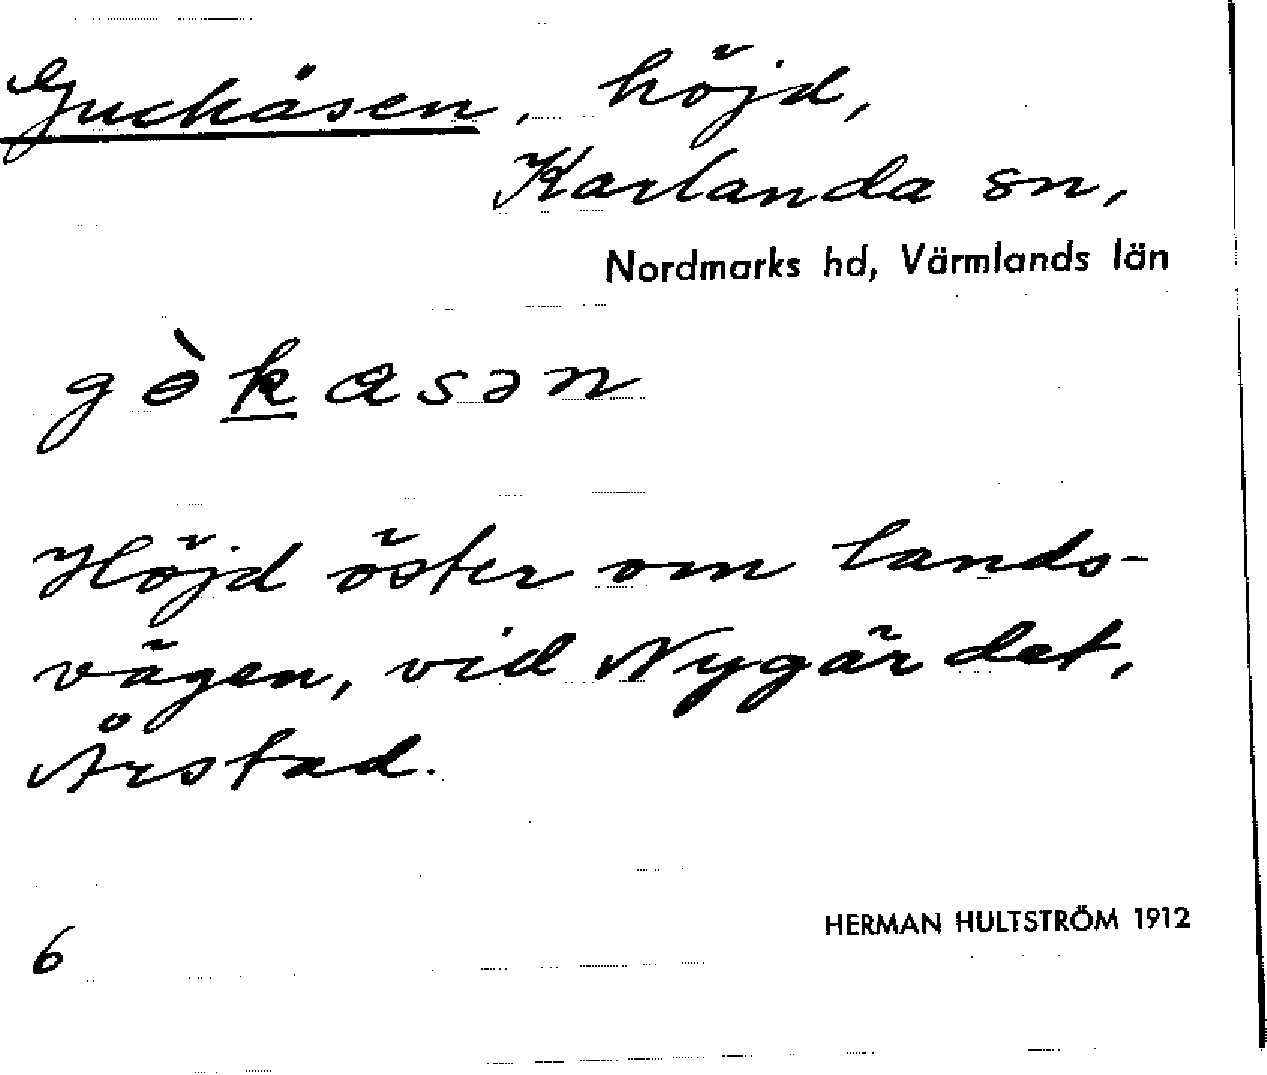 Guckåsen, höjd,
Karlanda sn,
Nordmarks hd, Värmlands län
gɵ̀kasən
Höjd öster om lands-
vägen, vid Nygärdet,
Årstad.
6
HERMAN HULTSTRÖM 1912